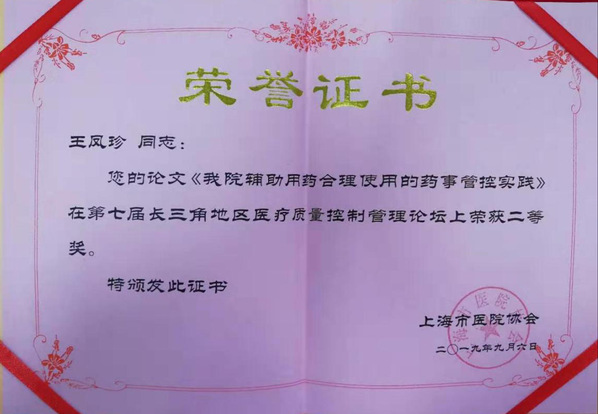 荣誉证书
王凤珍 同志：
您的论文《我院辅助用药合理使用的药事管控实践》
在第七届长三角地区医疗质量控制管理论坛上荣获二等
奖。
特颁发此证书
上海市医院协会
二〇一九年九月六日